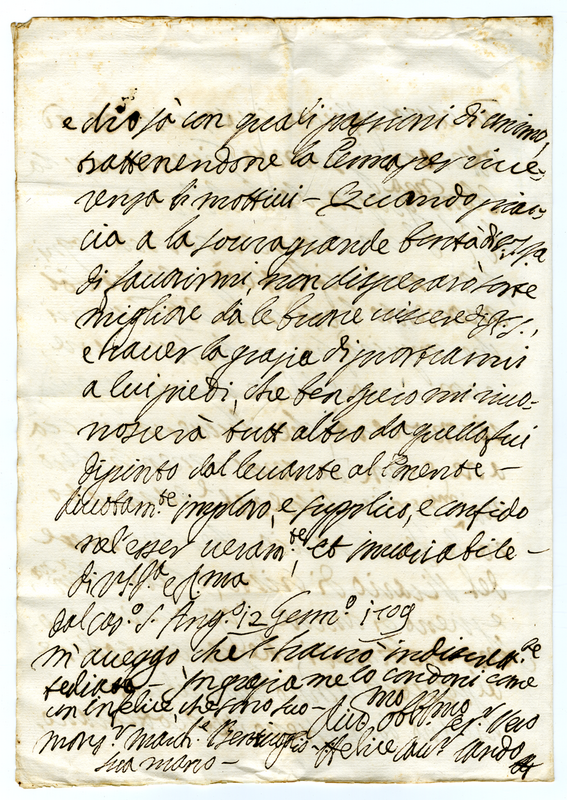 e dio sà con quali passioni di animo,
trattenendone la Penna per rive-
renza li mottivi - Quando piac-
cia a la sovragrande bontà di V.S.Ill.a
di favorirmi, non dispererò sorte
migliore da le buone viscere di V.S.,
e haver la grazia di portarmi
a lui piedi, che ben spero mi rico-
noscerà tutt'altro da quello fui
dipinto dal levante al ponente -
divotam.te imploro, e supplico, e confido
nel'esser veram.te et invariabile -
di V.S.Ill.a
dal Cas.o S. Ang.o 12 Genn.o 1709
M'aveggo che l'havrò
tediata - In grazia me lo condoni come
un infelice che sono suo -
Div.mo Obb.mo Ser.r vero
Mons.r
sua mano -